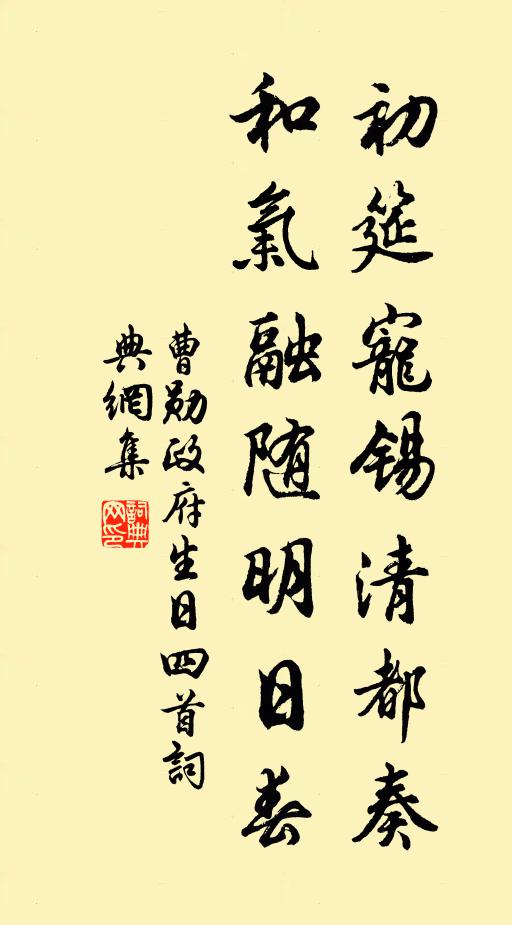 初筵寵錫清都奏
和氣融随明日春
曹勛政府生日四首詞
典網集
詞典网印